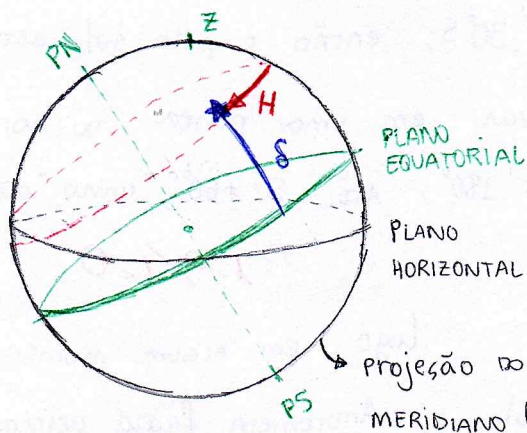 Z
PN
H
δ
PLANO
EQUATORIAL
PLANO
HORIZONTAL
PROJEÇÃO DO
MERIDIANO
PS